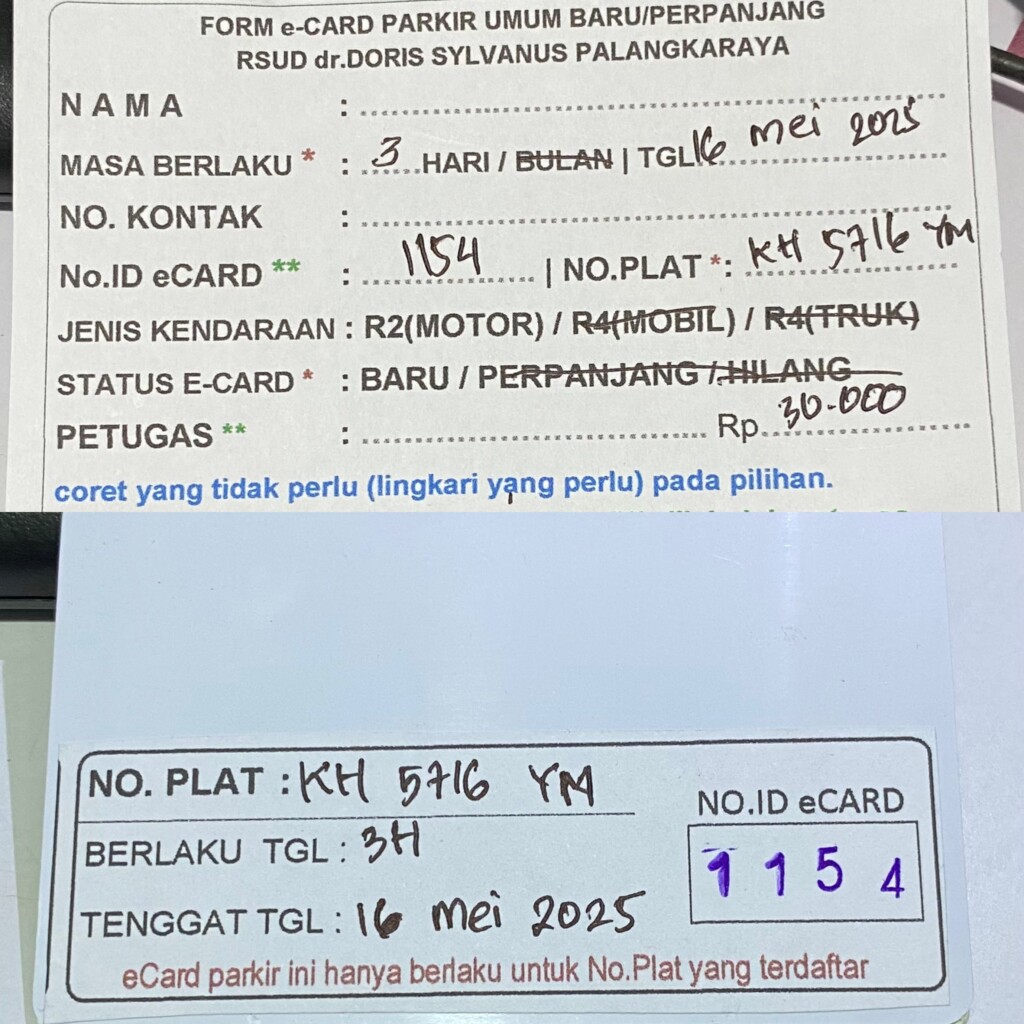 FORM e-CARD PARKIR UMUM BARU/PERPANJANG
RSUD dr.DORIS SYLVANUS PALANGKARAYA
NAMA : ....................
MASA BERLAKU * : 3 HARI / BULAN | TGL 16 mei 2025
NO. KONTAK : ....................
No.ID eCARD ** : 1154 | NO.PLAT *: KH 5716 YM
JENIS KENDARAAN : R2(MOTOR) / R4(MOBIL) / R4(TRUK)
STATUS E-CARD * : BARU / PERPANJANG / HILANG
PETUGAS ** : .................... Rp. 30.000
coret yang tidak perlu (lingkari yang perlu) pada pilihan.
NO. PLAT : KH 5716 YM
BERLAKU TGL : 3H
TENGGAT TGL : 16 mei 2025
NO.ID eCARD
1154
eCard parkir ini hanya berlaku untuk No.Plat yang terdaftar